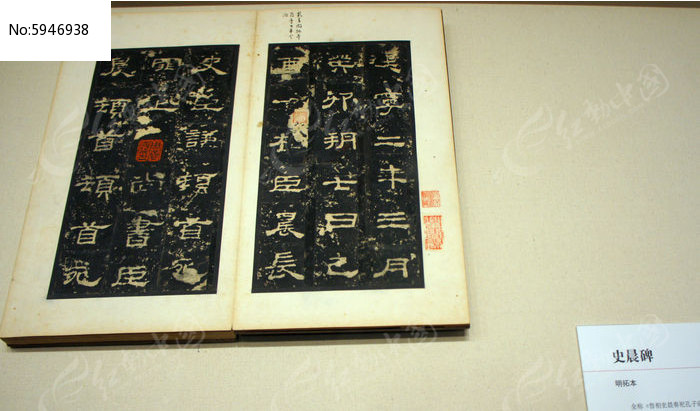 No:5946938
建寧二年三月
癸卯朔七日己
酉相臣晨長
史臣謙頓首死
罪上尚書臣
晨頓首頓首死
史晨碑
明拓本
全称《鲁相史晨奏祀孔子
红动中国